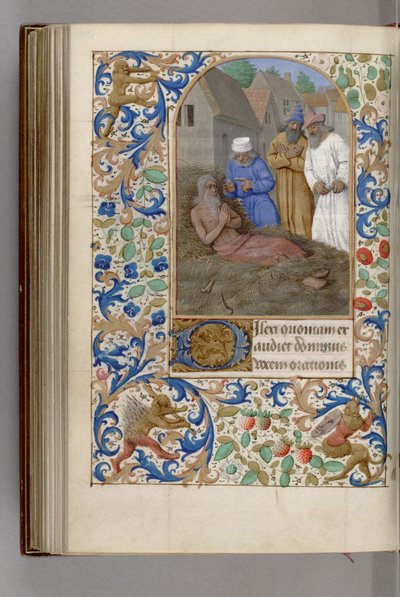 Dilexi quoniam ex
audiet dominus
vocem orationis